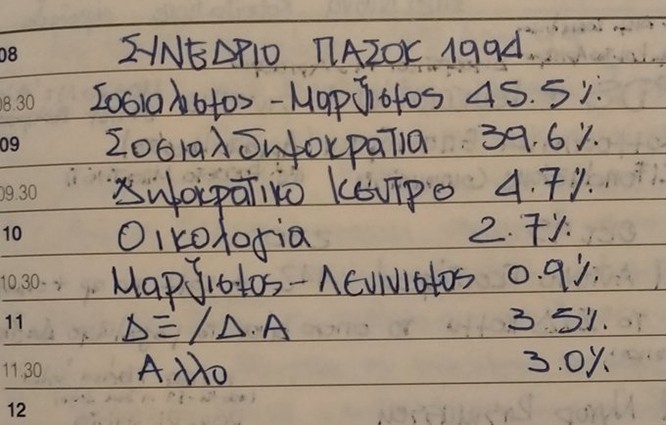 08 ΣΥΝΕΔΡΙΟ ΠΑΣΟΚ 1994
08.30 Σοσιαλιστος - Μαρξιστος 45.5%
09 Σοσιαλδημοκρατια 39.6%
09.30 Δημοκρατικο Κεντρο 4.7%
10 Οικολογία 2.7%
10.30 Μαρξιστος - Λενινιστος 0.9%
11 ΔΞ/Δ.Α 3.5%
11.30 Αλλο 3.0%
12